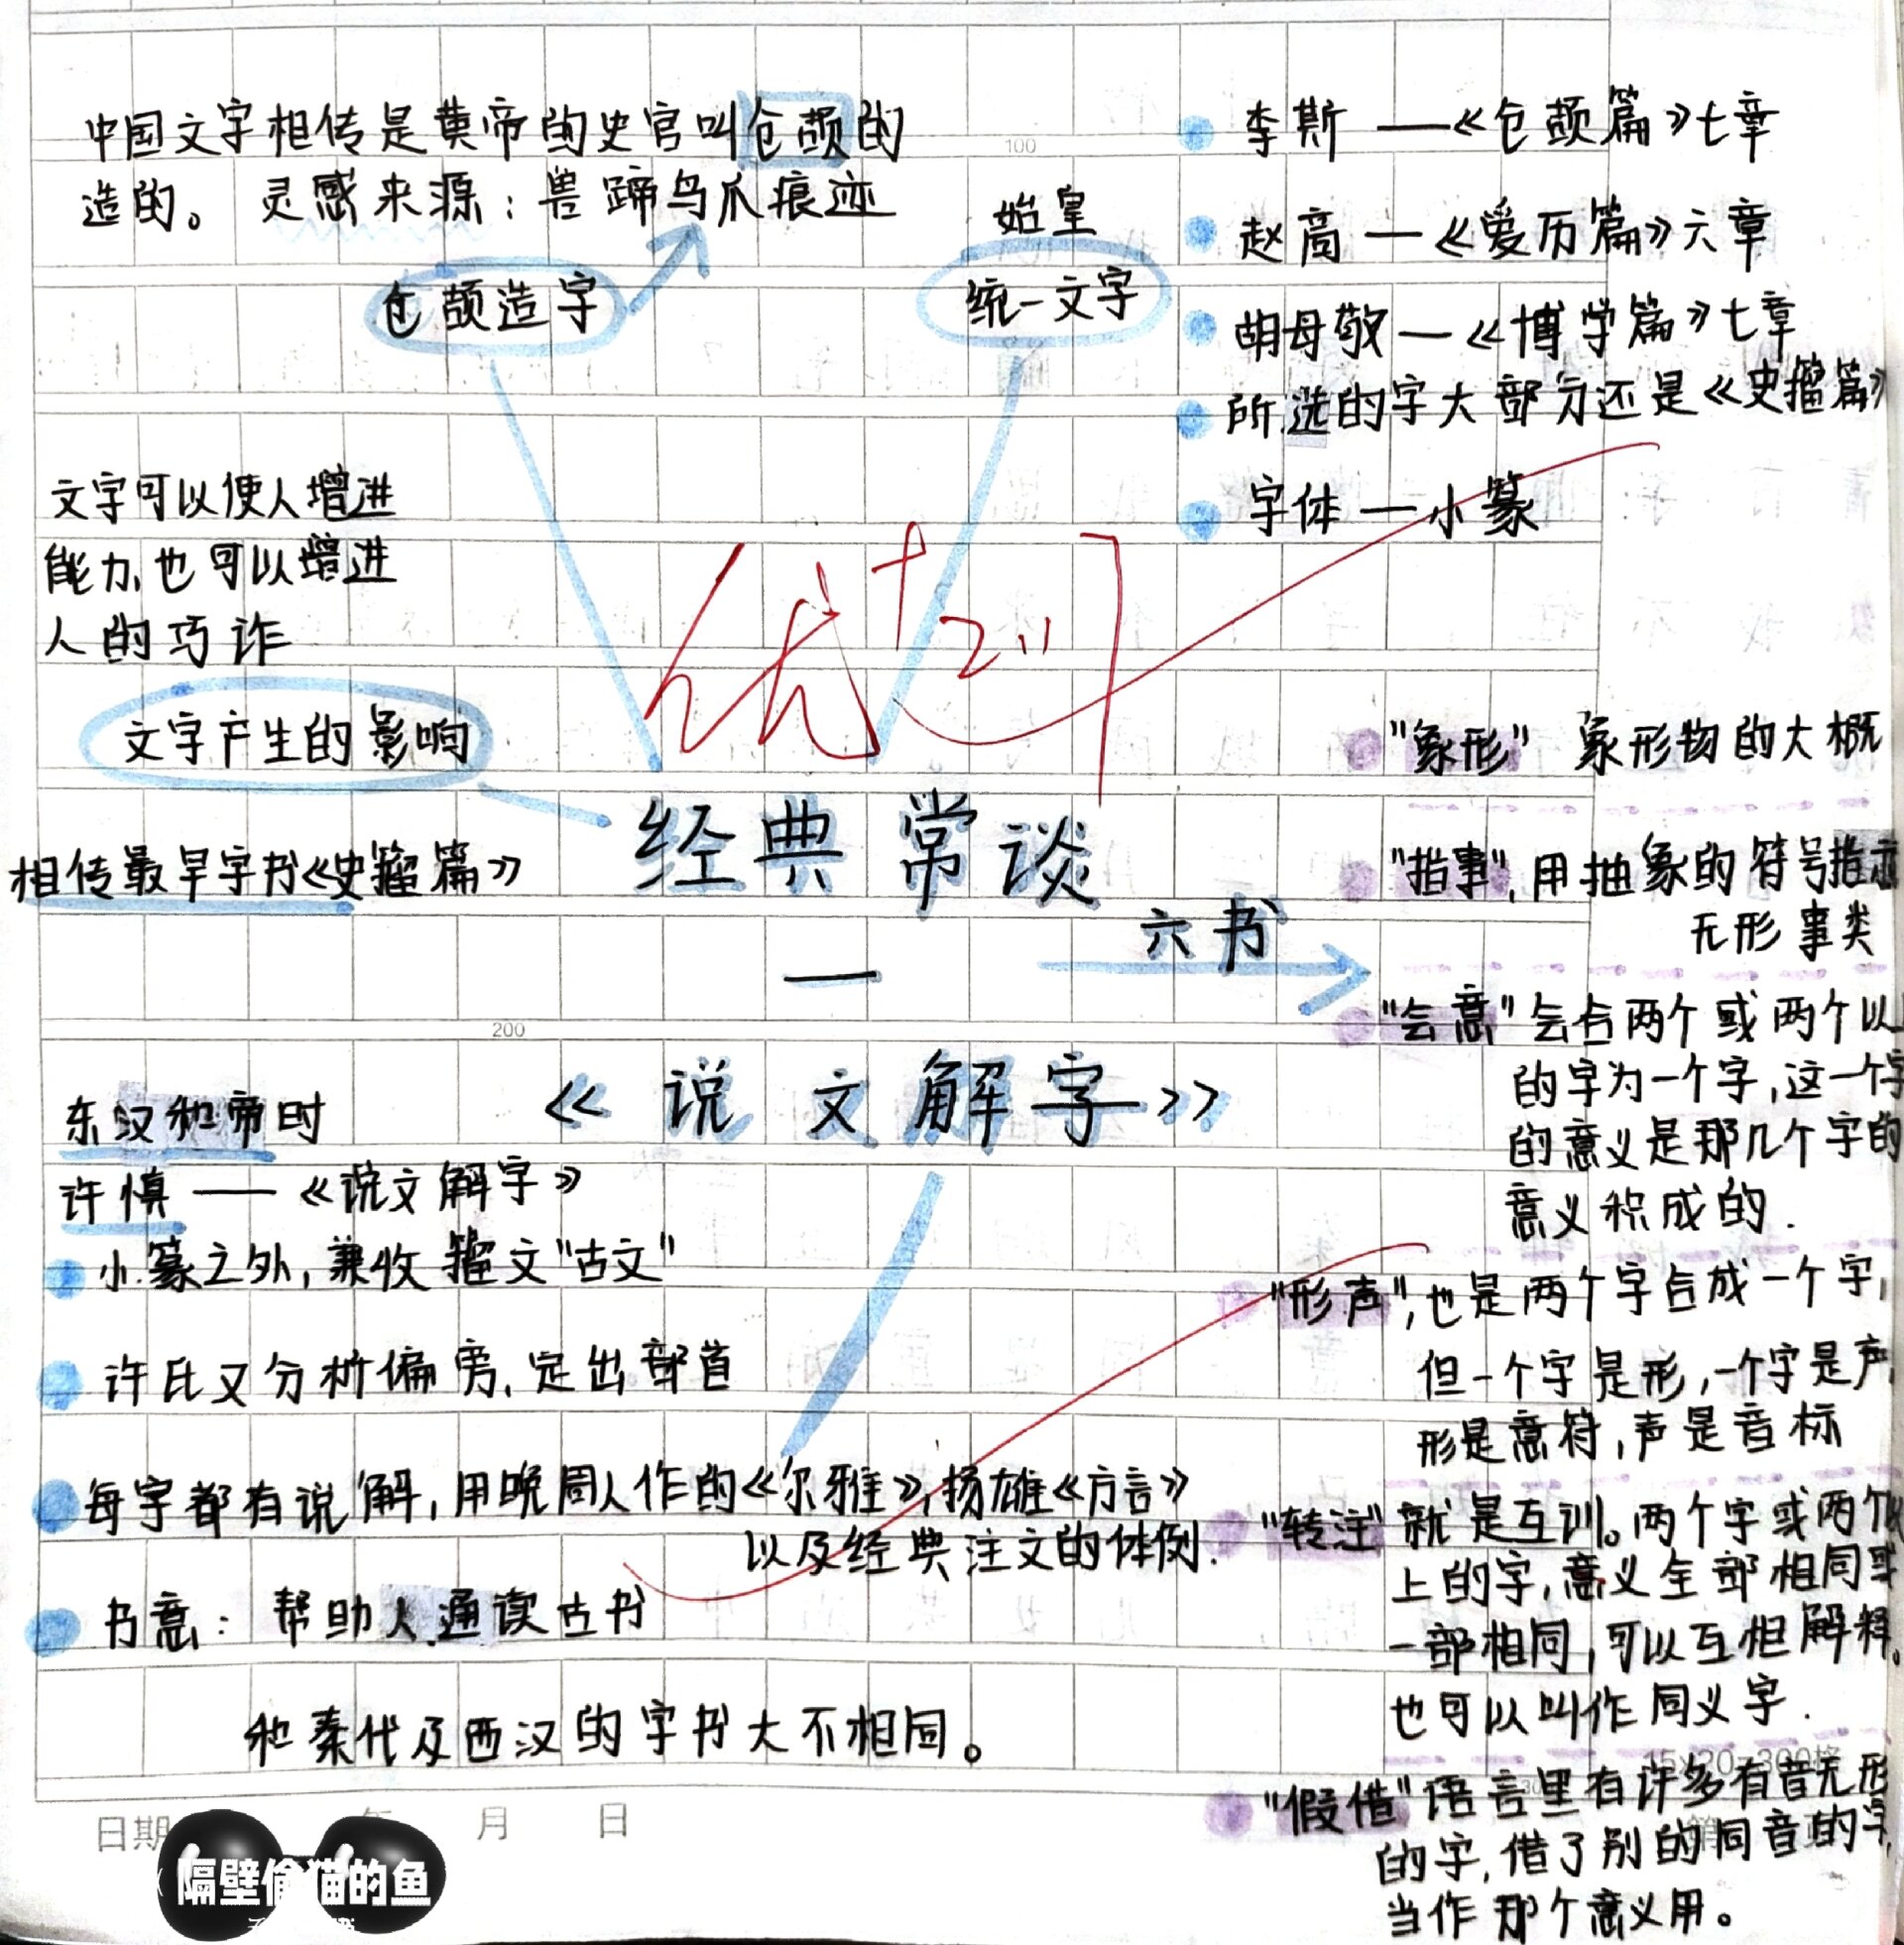 中国文字相传是黄帝的史官叫仓颉的
造的。灵感来源：兽蹄鸟爪痕迹
仓颉造字
始皇
统一文字
李斯——《仓颉篇》七章
赵高—《爰历篇》六章
胡母敬—《博学篇》七章
所选的字大部分还是《史籀篇》
字体—小篆
文字可以使人增进
能力,也可以增进
人的巧诈
文字产生的影响
相传最早字书《史籀篇》
优+
经典常谈
—
《说文解字》
六书
"象形" 象形物的大概
"指事",用抽象的符号指示
无形事类
"会意"会合两个或两个以
的字为一个字,这一个字
的意义是那几个字的
意义积成的.
"形声",也是两个字合成一个字,
但一个字是形,一个字是声
形是意符,声是音标
"转注"就是互训。两个字或两个以
上的字,意义全部相同或
一部相同,可以互相解释。
也可以叫作同义字.
"假借"语言里有许多有音无形
的字,借了别的同音的字,
当作那个意义用。
东汉和帝时
许慎——《说文解字》
小篆之外,兼收籀文"古文"
许氏又分析偏旁,定出部首
每字都有说解,用晚周人作的《尔雅》,扬雄《方言》
以及经典注文的体例.
书意：帮助人通读古书
和秦代及西汉的字书大不相同。
100
200
15×20=300格
日期 年 月 日
隔壁偷猫的鱼